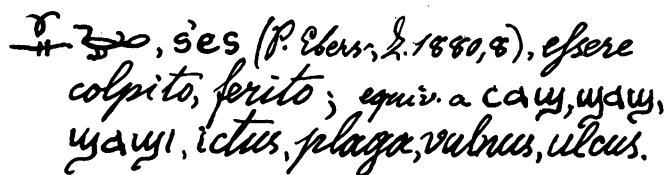 , śes (P. Ebers, Z. 1880, 8), essere
colpito, ferito; equiv. a ⲥⲁϣ, ϣⲁϣ,
ϣⲁϣⲓ, ictus, plaga, vulnus, ulcus.